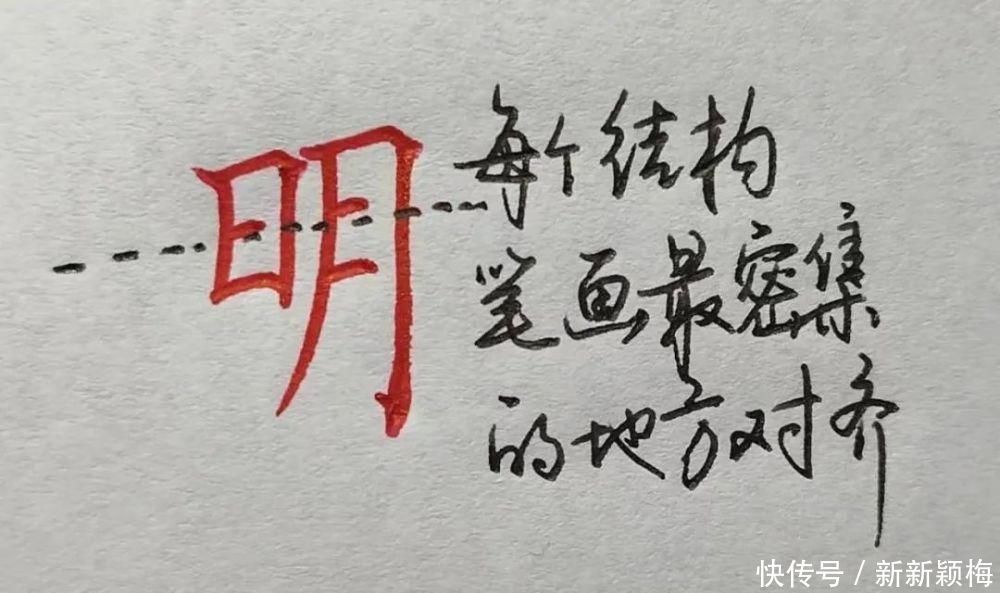 明
每个结构
笔画最密集
的地方对齐
快传号 / 新新颖梅